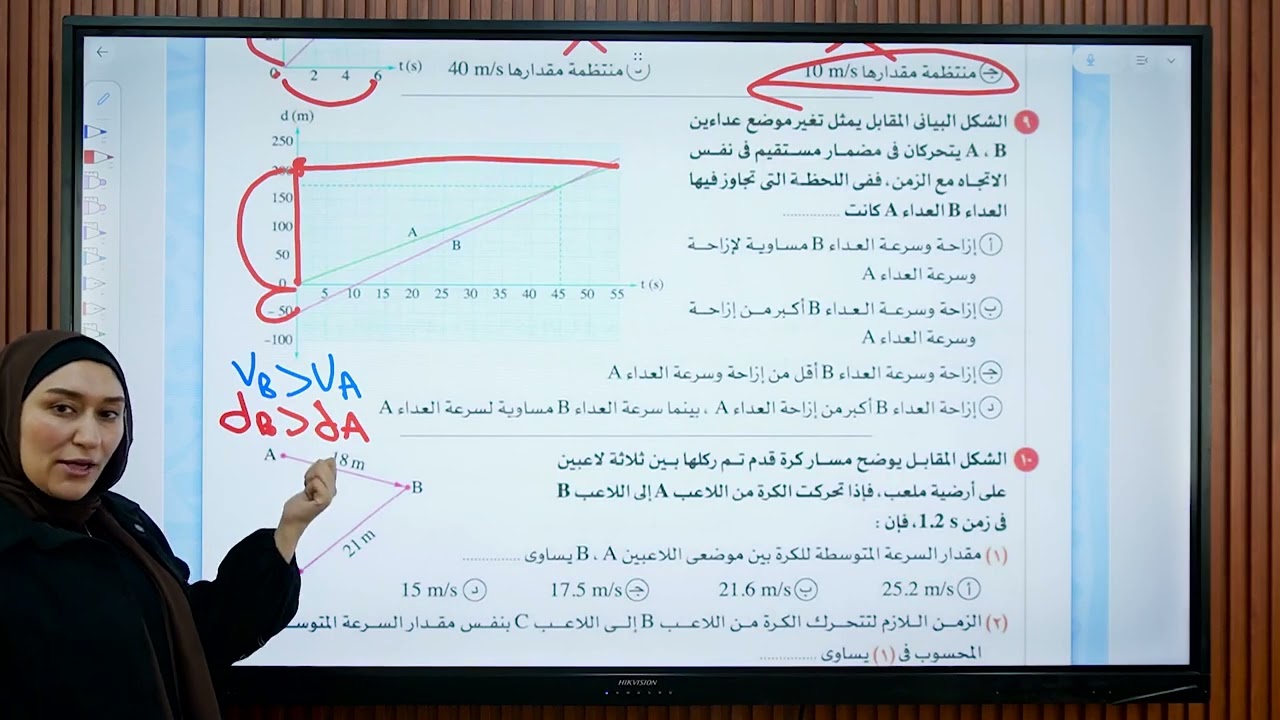 0 2 4 6 t (s)
ب منتظمة مقدارها 40 m/s
جـ منتظمة مقدارها 10 m/s
٩ الشكل البيانى المقابل يمثل تغير موضع عداءين
A ، B يتحركان فى مضمار مستقيم فى نفس
الاتجاه مع الزمن، ففى اللحظة التى تجاوز فيها
العداء B العداء A كانت ............
أ إزاحة وسرعة العداء B مساوية لإزاحة
وسرعة العداء A
ب إزاحة وسرعة العداء B أكبر من إزاحة
وسرعة العداء A
جـ إزاحة وسرعة العداء B أقل من إزاحة وسرعة العداء A
د إزاحة العداء B أكبر من إزاحة العداء A ، بينما سرعة العداء B مساوية لسرعة العداء A
d (m)
250
200
150
100
50
0
-50
-100
A
B
5 10 15 20 25 30 35 40 45 50 55 t (s)
VB > VA
dB > dA
١٠ الشكل المقابل يوضح مسار كرة قدم تم ركلها بين ثلاثة لاعبين
على أرضية ملعب، فإذا تحركت الكرة من اللاعب A إلى اللاعب B
فى زمن 1.2 s، فإن :
A
18 m
B
21 m
(١) مقدار السرعة المتوسطة للكرة بين موضعى اللاعبين A ، B يساوى ............
أ 25.2 m/s
ب 21.6 m/s
جـ 17.5 m/s
د 15 m/s
(٢) الزمن اللازم لتتحرك الكرة من اللاعب B إلى اللاعب C بنفس مقدار السرعة
المحسوب فى (١) يساوى ............
HIKVISION